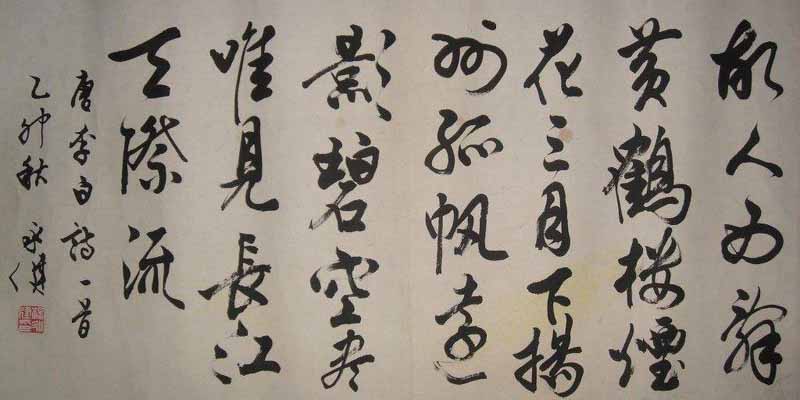 故人西辭
黄鶴楼煙
花三月下揚
州孤帆遠
影碧空尽
唯見長江
天際流
唐李白詩一首
乙卯秋